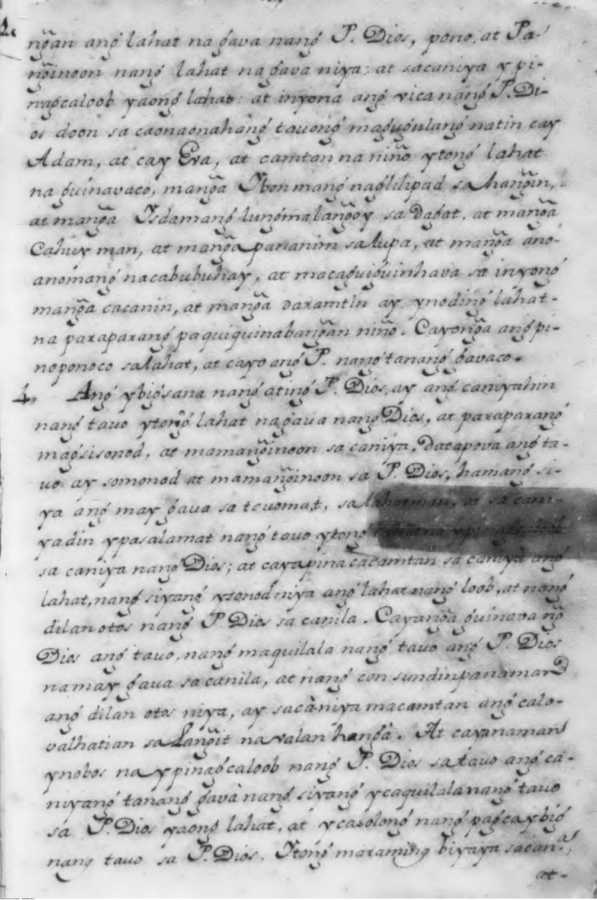 ng̃an ang̃ lahat na g̃ava nang̃ P. Dios, pono, at Pa-
ng̃inoon nang̃ lahat na g̃ava niya: at sacaniya ypi-
nag̃caloob yaong̃ lahat: at inyona ang̃ vica nang̃ P. Di-
os doon sa caonaonahang̃ tauong̃ mag̃ug̃ulang̃ natin cay
Adam, at cay Eva, at camtan na niño ytong̃ lahat
na g̃uinavaco, mang̃a Ybon mang̃ nag̃lilipad sa hang̃in,
at mang̃a Isdamang̃ lung̃malang̃oy sa dag̃at, at mang̃a
Cahuy man, at mang̃a pananim sa lupa, at mang̃a ano-
anomang̃ nacabubuhay, at macag̃uig̃uinhava sa inyong̃
mang̃a cacanin, at mang̃a daramtin ay ynoding̃ lahat-
na paraparang̃ paquiquinabang̃an niño. Cayong̃a ang̃ pi-
noponoco sa lahat, at cayo ang̃ P. nang̃ tanang̃ g̃avaco.
4. Ang̃ ybig̃ sana nang̃ ating̃ P. Dios, ay ang̃ caniyahin
nang̃ tavo ytong̃ lahat na g̃ava nang̃ Dios, at paraparang̃
mag̃sisonod, at mamang̃inoon sa caniya, datapova ang̃ ta-
vo ay somonod at mamang̃inoon sa P. Dios, hamang̃ si-
ya ang̃ may g̃ava sa tevomat, sa lahat man, at sa cani-
ya din ypasalamat nang̃ tavo ytong̃
sa caniya nang̃ Dios; at caya pinacacamtan sa caniya ang̃
lahat, nang̃ siyang̃ ysonod niya ang̃ lahat nang̃ loob, at nang̃
dilan otos nang̃ P. Dios sa canila. Cayang̃a g̃uinava ng̃
Dios ang̃ tavo, nang̃ maquilala nang̃ tavo ang̃ P. Dios
na may g̃ava sa canila, at nang̃ con sundin panaman
ang̃ dilan otos niya, ay sacaniya macamtan ang̃ calo-
valhatian sa Lang̃it na valan hang̃a. At caya naman
ynobos na ypinag̃caloob nang̃ P. Dios sa tavo ang̃ ca-
niyang̃ tanang̃ g̃ava nang̃ siyang̃ ycaquilala nang̃ tavo
sa P. Dios yaong̃ lahat, at ycasolong̃ nang̃ pag̃caybig̃
nang̃ tavo sa P. Dios. Itong̃ maraming̃ biyaya sacan
at-